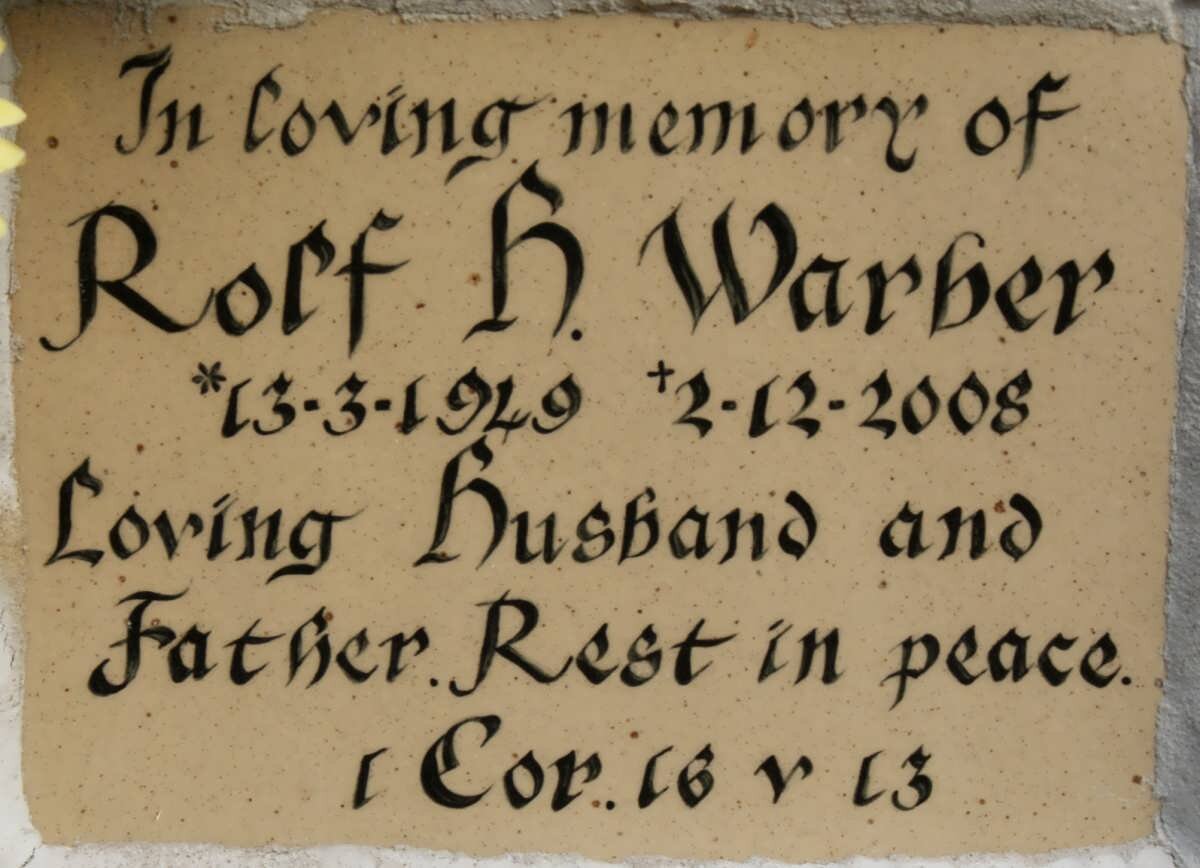 In loving memory of
Rolf H. Warber
*13-3-1949 †2-12-2008
Loving Husband and
Father. Rest in peace.
1 Cor. 16 v 13